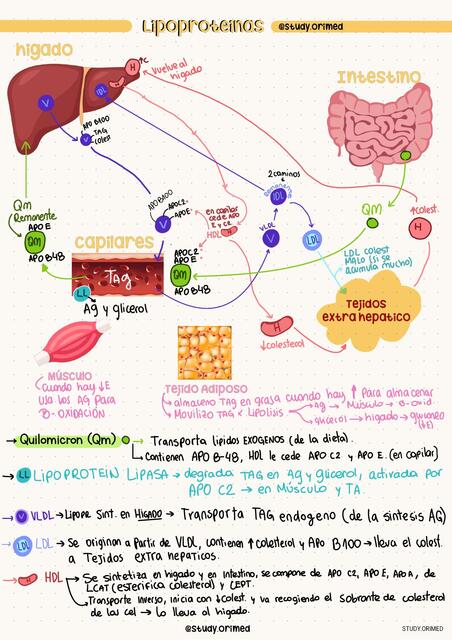 Lipoproteínas
@study.orimed
hígado
Intestino
Capilares
H
↑C
Vuelve al
hígado
V
IDL
APO B100
V
TAG
colest
2 caminos
Remanente
IDL
APO B100
V
APOC2
APOE
en capilar
cede APO
E y C2
HDL
VLDL
LDL
LDL colest
MALO (si se
acumula mucho)
Qm
↑colest.
H
Qm
Remanente
APO E
Qm
APO B48
APOC2
APO E
Qm
APO B48
TAG
LL
Ag y glicerol
H
↓colesterol
Tejidos
extra hepático
MÚSCULO
Cuando hay ↓E
usa los AG para
B-OXIDACIÓN
Tejido Adiposo
→ almaceno TAG en grasa cuando hay ↑ Para almacenar
→ Movilizo TAG x Lipolisis
→ Ag → Músculo → B-Oxid
→ glicerol → hígado → gluconeo
(+E)
→ Quilomicron (Qm) → Transporta lípidos EXOGENOS (de la dieta).
→ Contienen APO B-48, HDL le cede APO C2 y APO E. (en capilar)
→ LL LIPOPROTEIN LIPASA → degrada TAG en Ag y Glicerol, activada por
APO C2 → en Músculo y TA.
→ V VLDL → Lipopr Sint. en HIGADO → Transporta TAG endogeno (de la síntesis AG)
→ LDL LDL → Se originan a partir de VLDL, contienen ↑ colesterol y APO B100 → lleva el colest.
a Tejidos extra hepaticos.
→ HDL → Se sintetiza en hígado y en Intestino, se compone de APO C2, APO E, APO A, de
LCAT (esterifica colesterol) y CEPT.
→ Transporte Inverso, inicia con ↓Colest. y va recogiendo el Sobrante de colesterol
de las cel → Lo lleva al hígado.
@study.orimed
STUDY.ORIMED